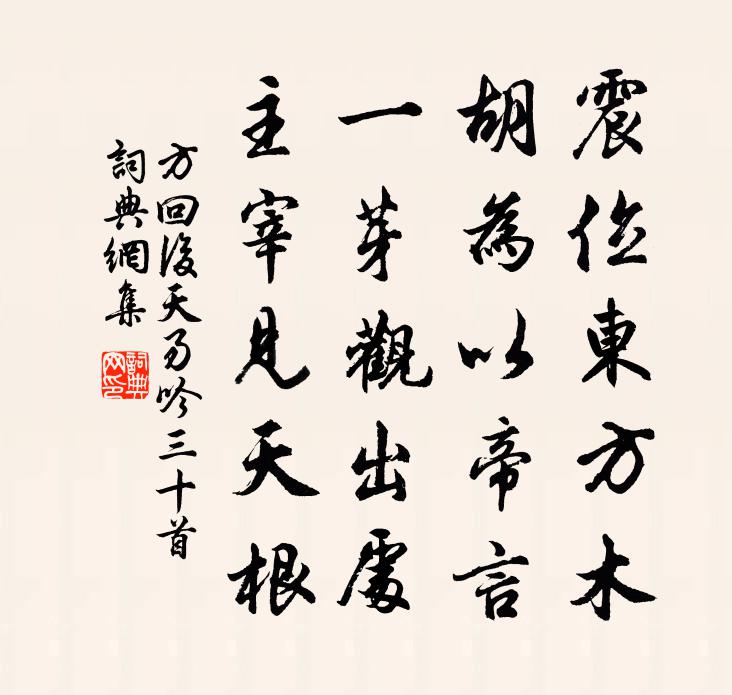 震位東方木
胡為以帝言
一芽觀出處
主宰見天根
方回後天易吟三十首
詞典網集
詞典網印